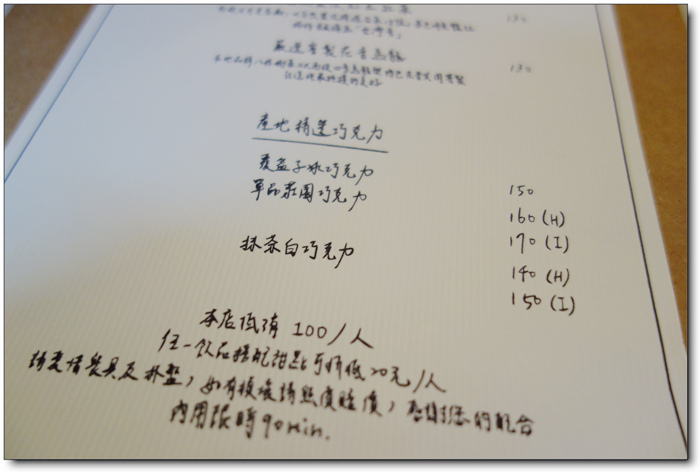 130
嚴選窨製花香烏龍
130
產地精選巧克力
覆盆子冰巧克力
150
單品莊園巧克力
160 (H)
170 (I)
抹茶白巧克力
140 (H)
150 (I)
本店低消 100/人
任一飲品搭配甜點可折低20元/人
請愛惜餐具及杯盤,如有損壞請照價賠償,感謝您的配合
內用限時90min.